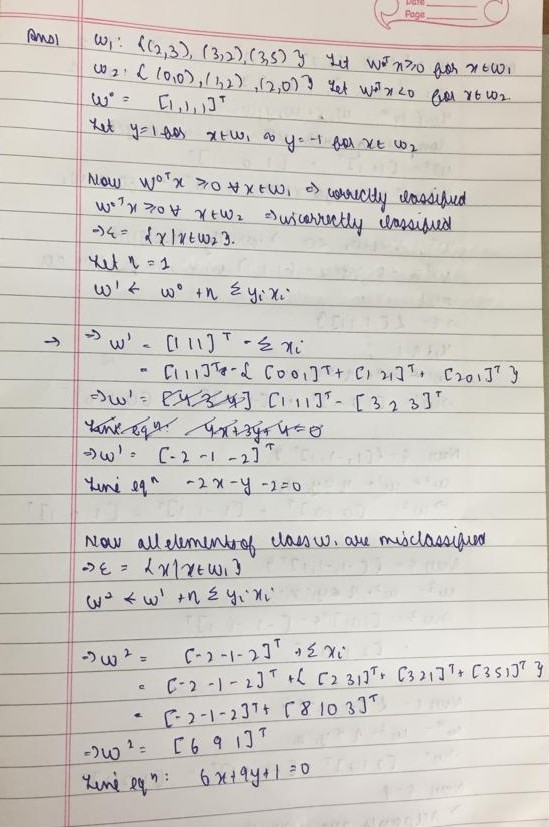 Date
Page
Ans1 ω₁: {(2,3), (3,2), (3,5)} Let WᵀX≥0 for x∈ω₁
ω₂: { (0,0), (1,2), (2,0)} Let WᵀX<0 for x∈ω₂
W⁰ = [1,1,1]ᵀ
Let y=1 for x∈ω₁ & y=-1 for x∈ω₂
Now W⁰ᵀx ≥0 ∀ x∈ω₁ => correctly classified
W⁰ᵀx ≥0 ∀ x∈ω₂ => incorrectly classified
=> ε = {x | x∈ω₂}.
Let η = 1
W¹ ← W⁰ + η Σ yᵢxᵢ
→ => W¹ = [1 1 1]ᵀ - Σ xᵢ
= [1 1 1]ᵀ - { [0 0 1]ᵀ + [1 2 1]ᵀ + [2 0 1]ᵀ }
=> W¹ = [4 3 4] [1 1 1]ᵀ - [3 2 3]ᵀ
Line eqⁿ 4x+3y+4=0
=> W¹ = [-2 -1 -2]ᵀ
Line eqⁿ -2x-y-2=0
Now all elements of class ω₁ are misclassified
=> ε = {x | x∈ω₁}
W² ← W¹ + η Σ yᵢxᵢ
=> W² = [-2 -1 -2]ᵀ + Σ xᵢ
= [-2 -1 -2]ᵀ + { [2 3 1]ᵀ + [3 2 1]ᵀ + [3 5 1]ᵀ }
= [-2 -1 -2]ᵀ + [8 10 3]ᵀ
=> W² = [6 9 1]ᵀ
Line eqⁿ: 6x+9y+1=0